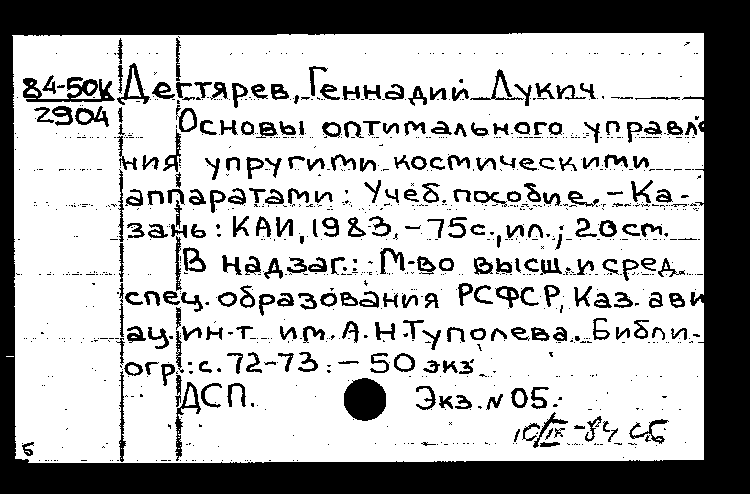 84-50к Дегтярев, Геннадий Лукич.
2904 Основы оптимального управле
ния упругими космическими
аппаратами: Учеб. пособие. – Ка-
зань: КАИ, 1983. – 75с., ил.; 20см.
В надзаг.: М-во высш. и сред.
спец. образования РСФСР, Каз. ави
ац. ин-т им. А.Н.Туполева. Библи-
огр.: с. 72-73. – 50 экз.
ДСП. Экз. № 05.
10/IX-84 СБ
б